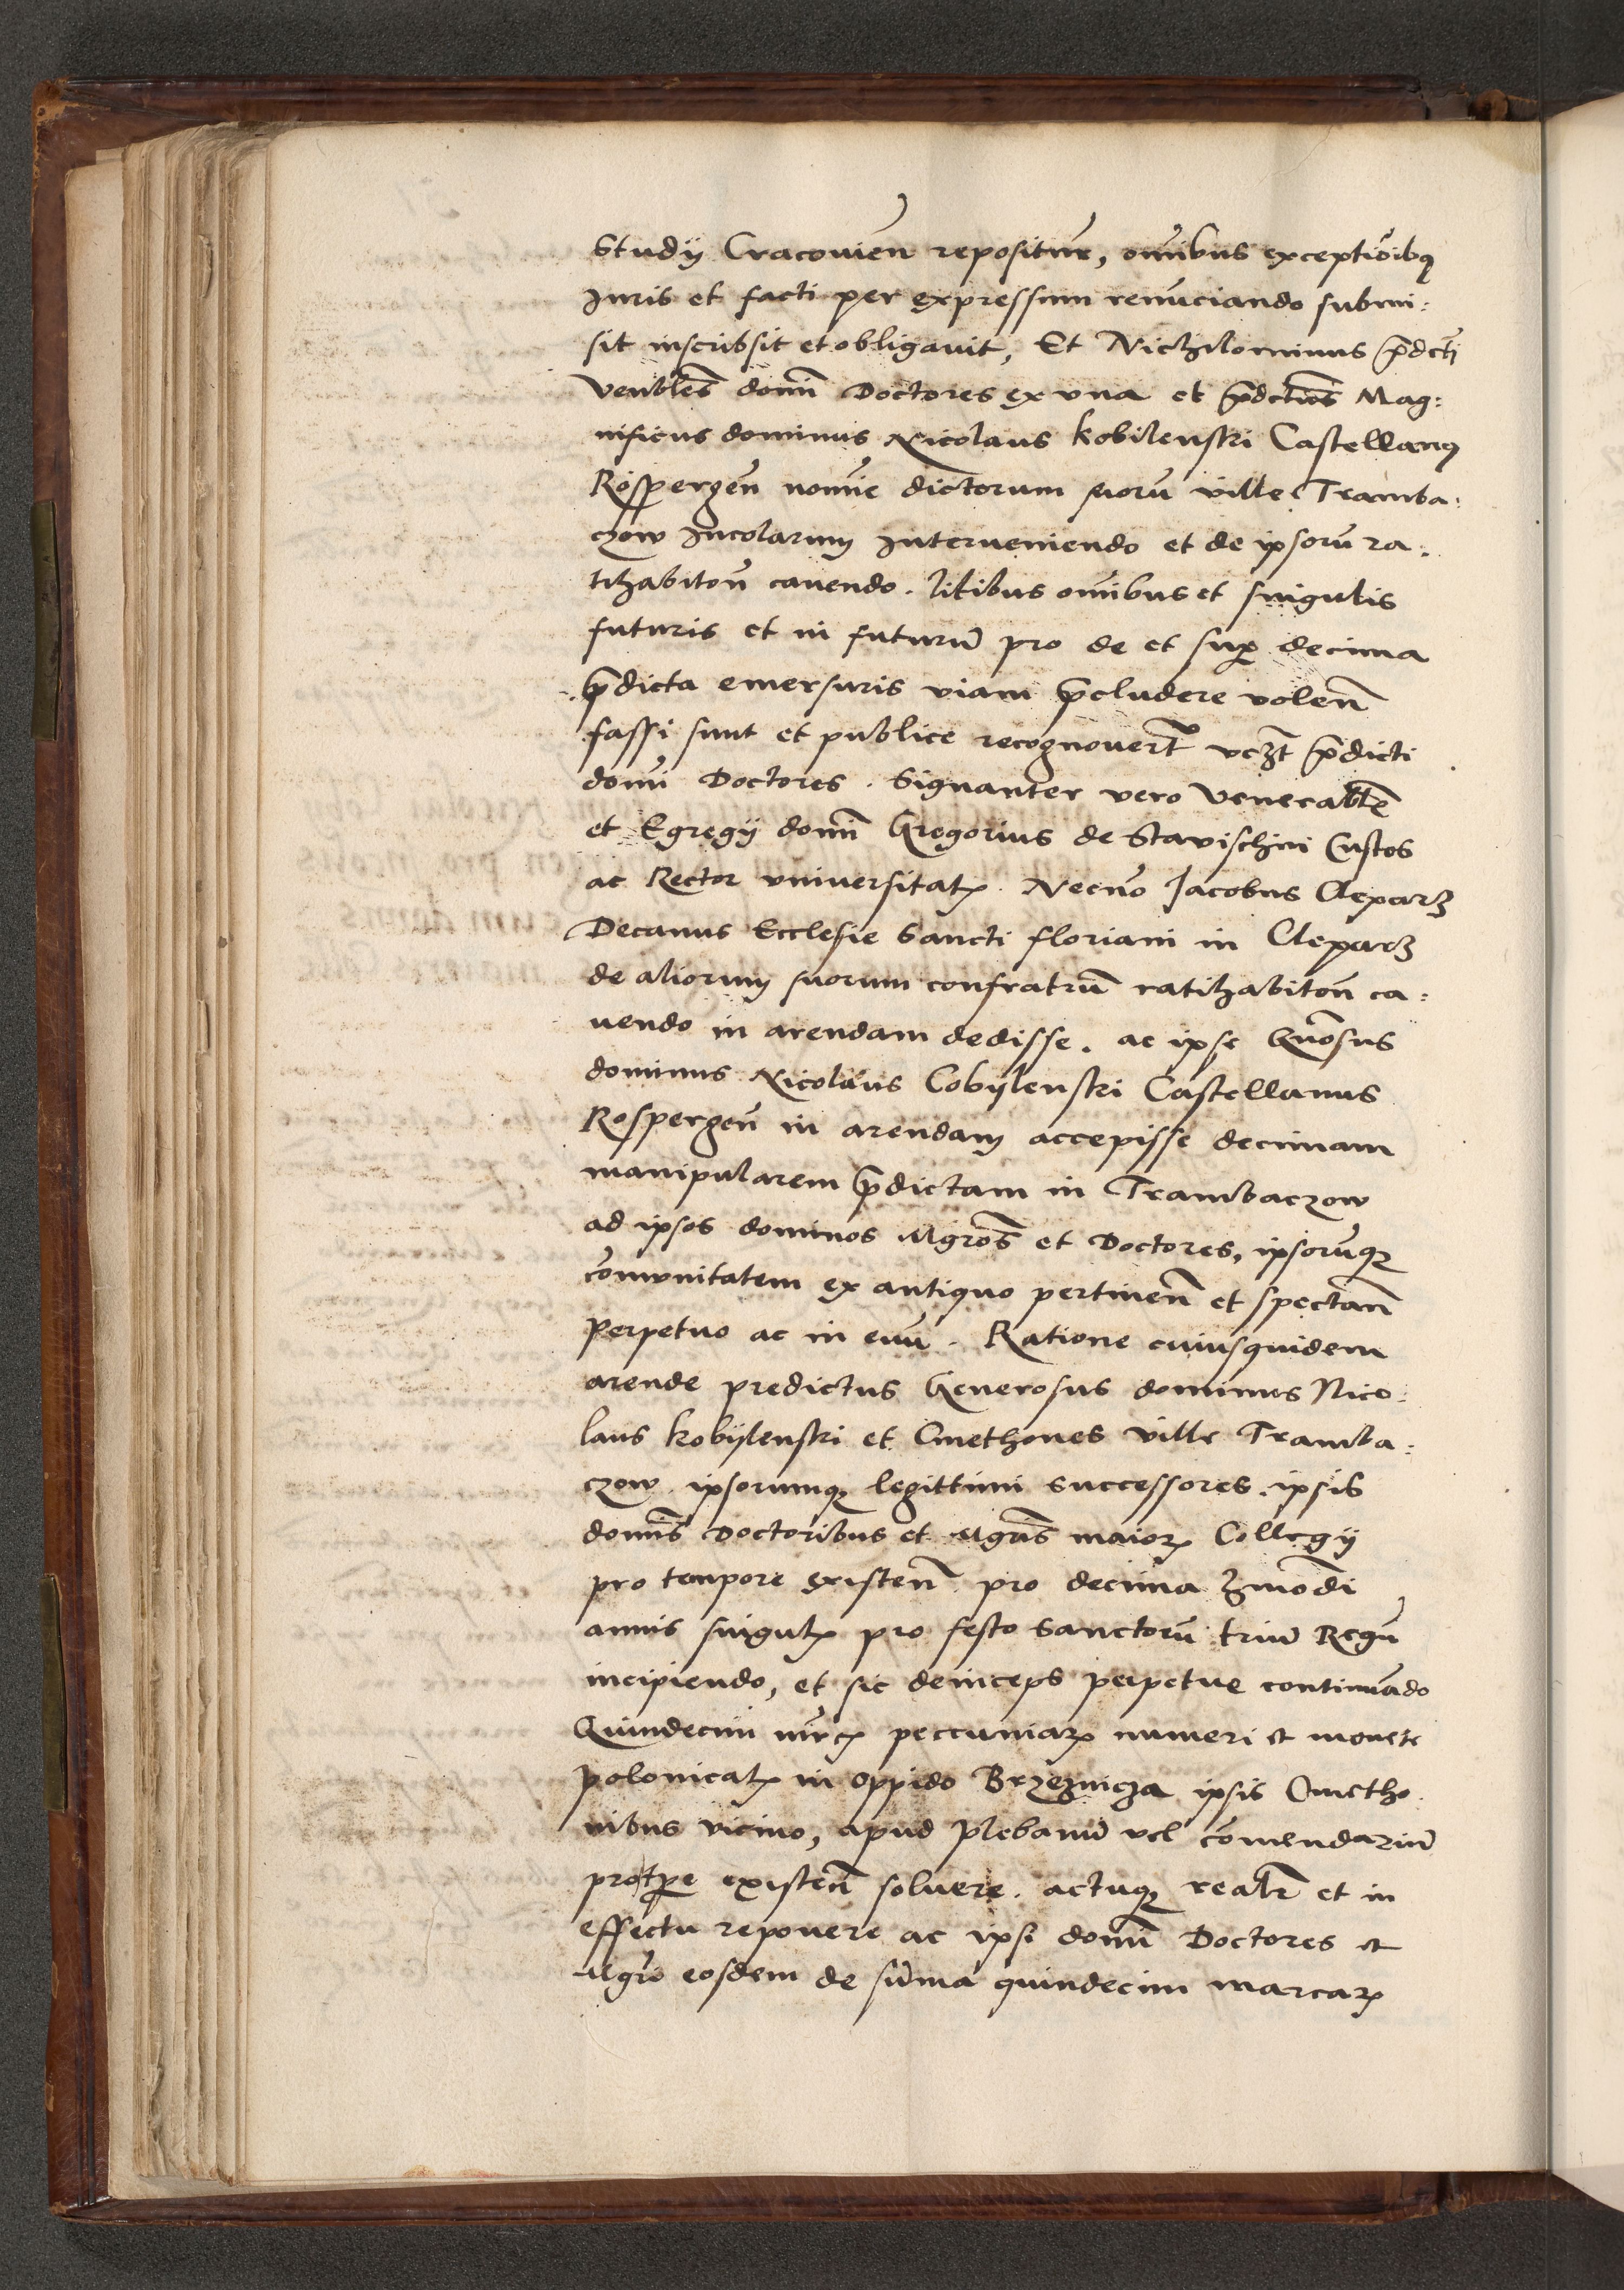 Studÿ Cracouien̄ repositum̄, om̄ibus exceptio͞ibꝫ
Juris et facti per expressum renūciando submi:
sit inscribsit et obligauit, Et Nichilominus p̄dcti
Venbles domī Doctores ex vna et p̄dctus Mag:
nificus dominus Nicolaus Kobilenski Castellanꝫ
Rospergen̄ nomīe dictorum suorū ville Tramba:
czow Incolarum Interueniendo et de ipsorū ra:
tihabiton̄ cauendo. litibus om̄ibus et singulis
futuris et in futurū pro de et sup̄ decima
p̄dicta emersuris viam p̄cludere volen̄
fassi sunt et publice recognouert̄ vcꝫt p̄dicti
domī Doctores. Signanter vero Venerabl̄es
et Egregÿ domī Gregorius de Stavischin Custos
ac Rector vniuersitatꝭ Necno͞ Jacobus Cleparꝫ
Decanus Ecclesie Sancti floriani in Cleparꝫ
de aliorum suorum confratrū ratihabiton̄ ca:
uendo in arendam dedisse. ac ipse Gn̄osus
dominus Nicolaus Cobÿlenski Castellanus
Rospergen̄ in arendam accepisse decimam
manipularem p̄dictam in Trambaczow
ad ipsos dominos Mgros̄ et Doctores, ipsorūqꝫ
com̄vnitatem ex antiquo pertinen̄ et spectan̄
perpetuo ac in euū. Ratione cuiusquidem
arende predictus Generosus dominus Nico:
laus Kobÿlenski et Cmethones ville Tramba:
czow ipsorumqꝫ legittimi successores. ipsis
domīs Doctoribus et Mgris̄ maiorꝭ Collegÿ
pro tempore existen̄ pro decima hmōdi
annis singulꝭ pro festo Sanctorū triū Regū
incipiendo, et sic deinceps perpetue continuādo
Quindecim mrcꝭ peccuniarꝭ numeri et monete
polonicalꝭ in oppido Brzeznicza ipsis Cmetho
nibus vicino, apud plebanū vel com̄endariū
pro tp̄re existen̄ soluere. actuqꝫ realr̄ et in
effectu reponere ac ipsi domī Doctores et
Mgri̅ eosdem de sum̄a quindecim marcarꝭ